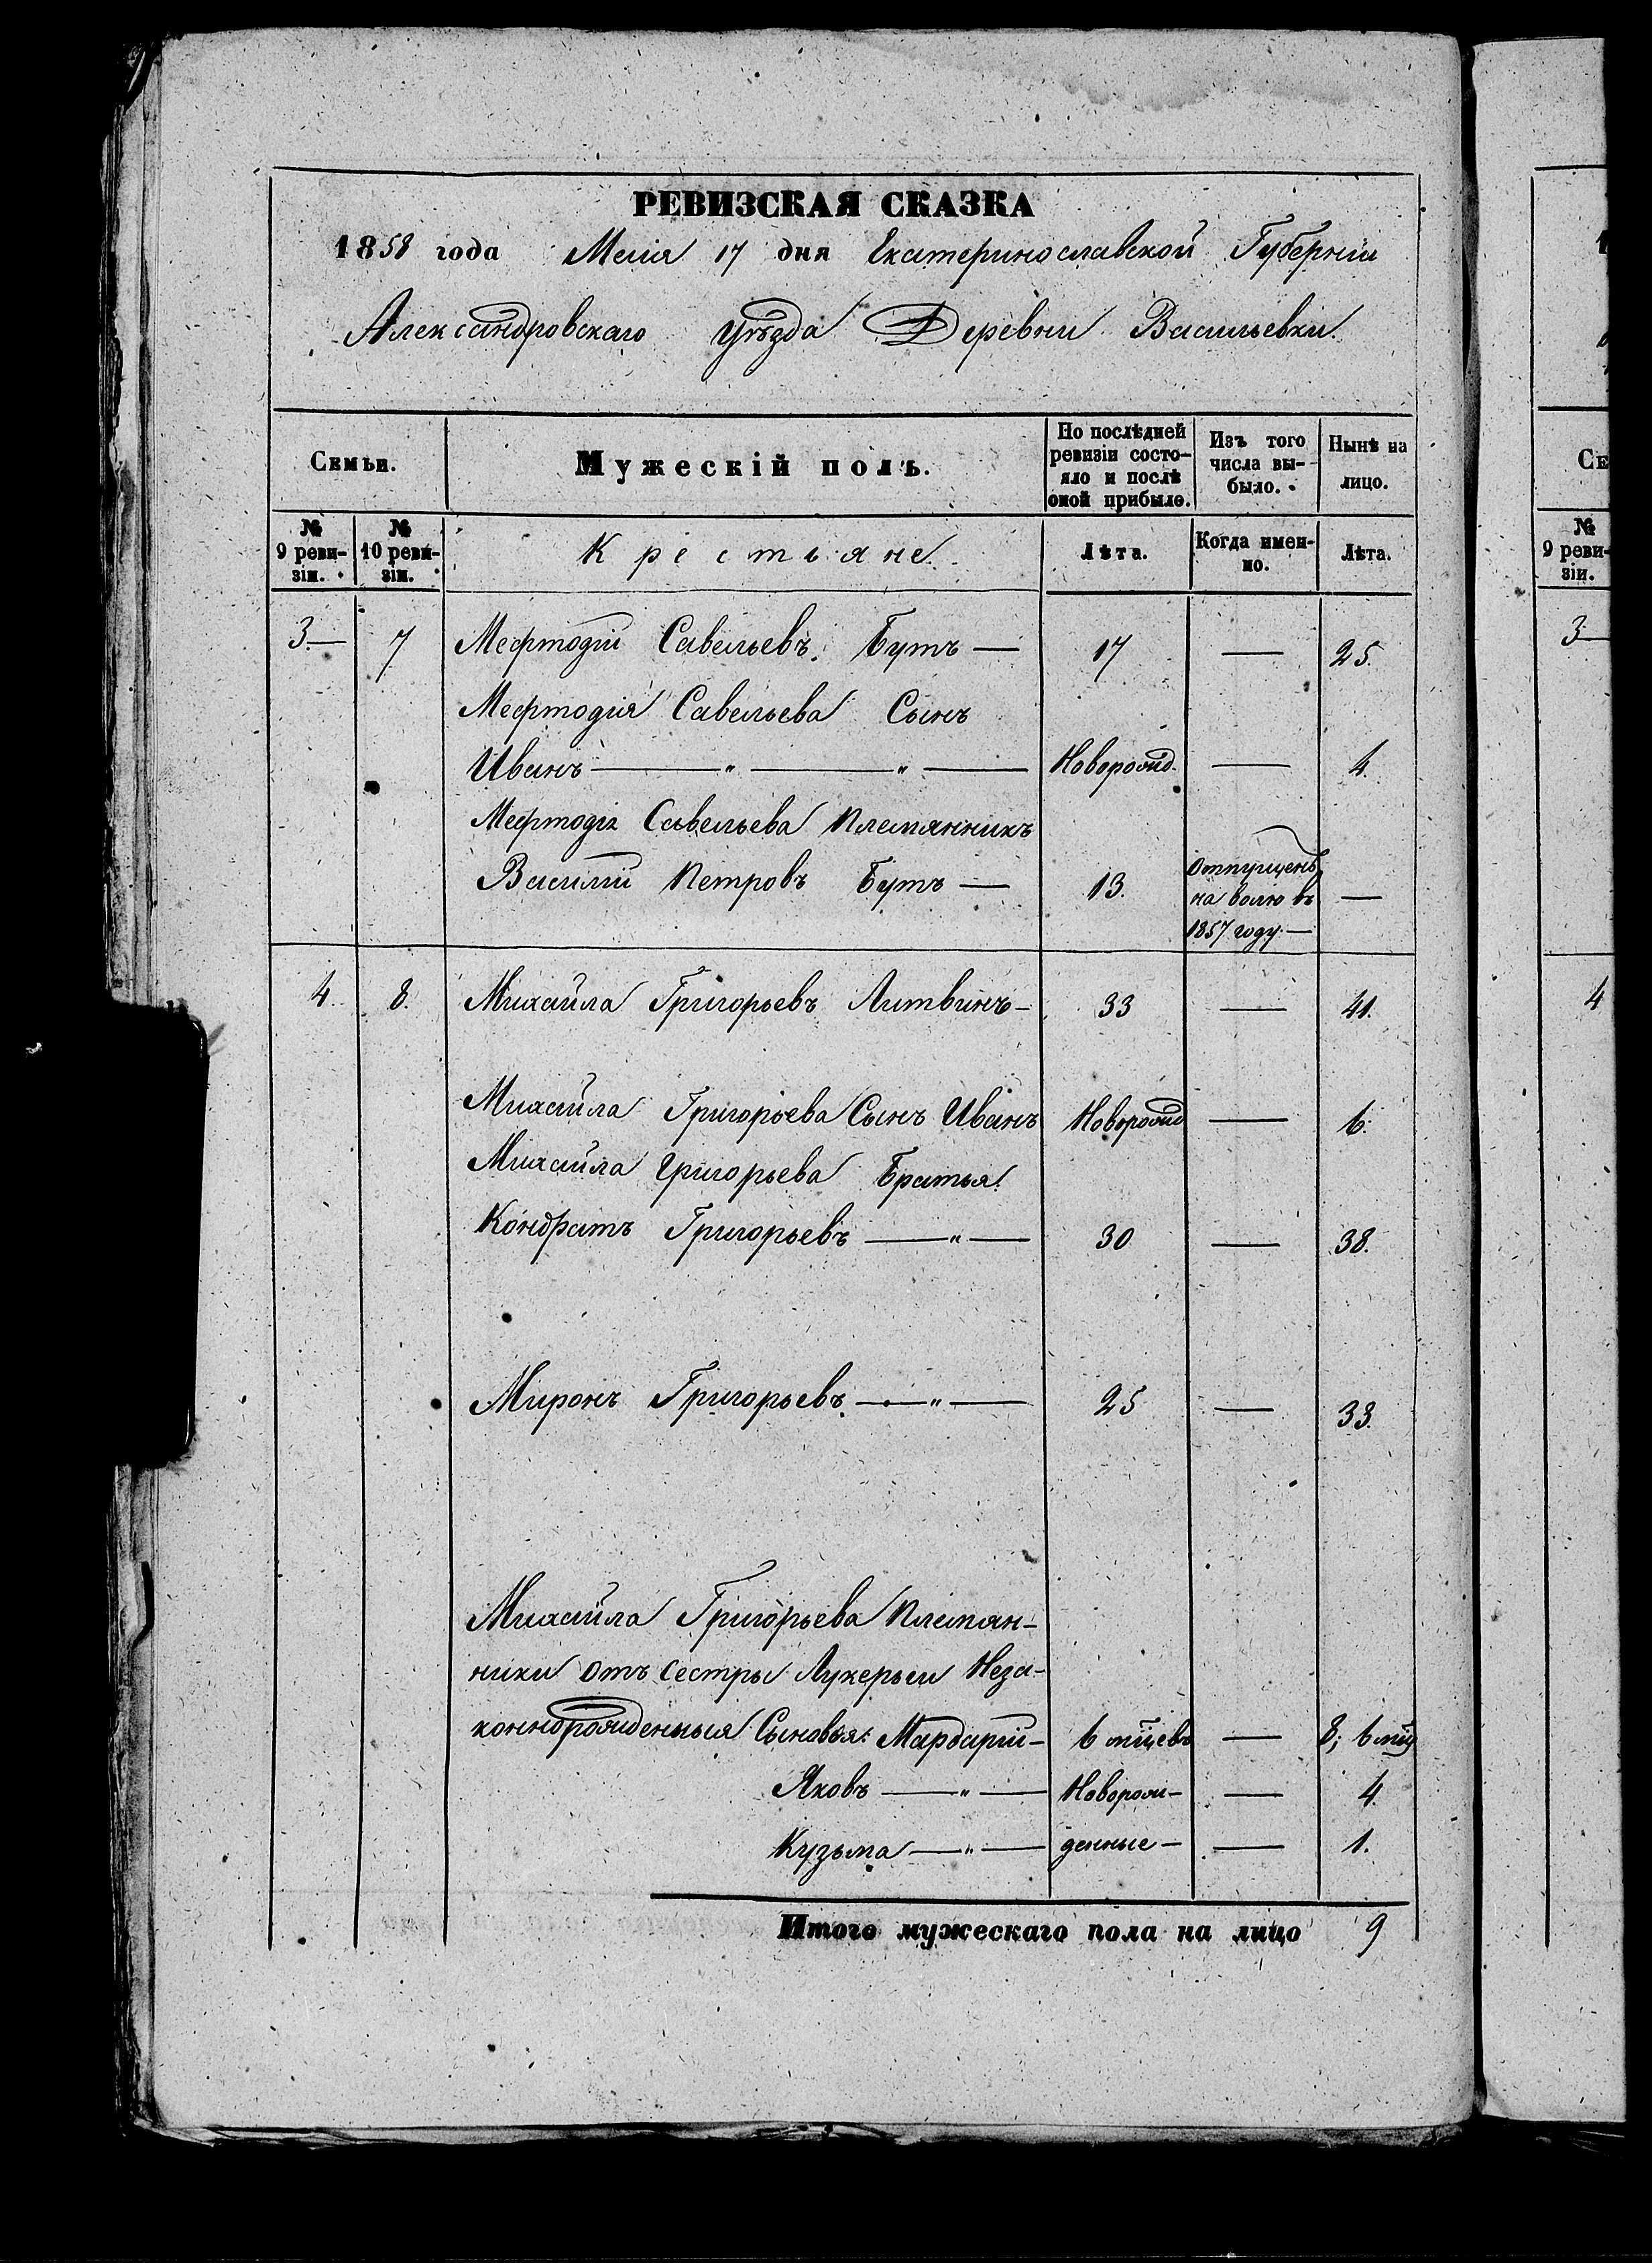 РЕВИЗСКАЯ СКАЗКА
1858 года Маія 17 дня Екатеринославской Губерніи
Александровскаго Уѣзда Деревни Васильевки.
Семьи.
Мужескій полъ.
По послѣдней ревизіи состояло и послѣ оной прибыло.
Изъ того числа выбыло.
Нынѣ на лицо.
№ 9 ревизіи.
№ 10 ревизіи.
Крестьяне.
Лѣта.
Когда именно.
Лѣта.
3 — 7 Мефтодій Савельевъ Бутъ — 17 — 25.
Мефтодія Савельева Сынъ
Иванъ — " — " — Новорожд. — 4.
Мефтодія Савельева племянникъ
Василій Петровъ Бутъ — 13. Отпущенъ на волю въ 1857 году. — —
4. 8. Михайла Григорьевъ Литвинъ — 33 — 41.
Михайла Григорьева Сынъ Иванъ Новорожд — 6.
Михайла Григорьева Братья
Кондратъ Григорьевъ — " — 30 — 38.
Миронъ Григорьевъ — " — 25 — 33.
Михайла Григорьева племян-
ники отъ сестры Лукерьи Неза-
коннорожденныя Сыновья: Мардарій — 6 мцевъ — 8; 6 мцъ
Яковъ — " — Новорож- — 4.
Кузьма — " — денные — — 1.
Итого мужескаго пола на лицо 9
3 —
4
№ 9 реви-
зіи.